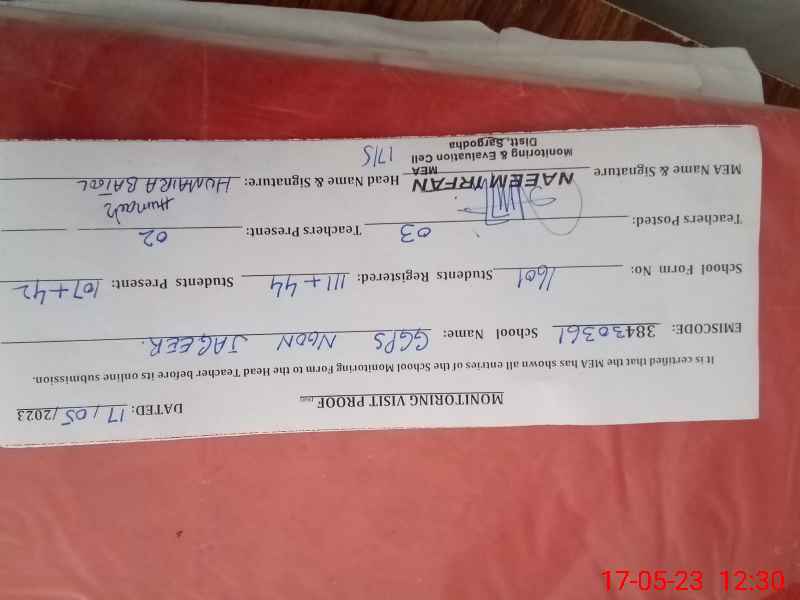 MONITORING VISIT PROOF
DATED: 17/05/2023
It is certified that the MEA has shown all entries of the School Monitoring Form to the Head Teacher before its online submission.
EMISCODE: 38430361 School Name: GGPS NOON JAGEER.
School Form No: 1601 Students Registered: 111+44 Students Present: 107+42
Teachers Posted: 03 Teachers Present: 02
MEA Name & Signature NAEEM IRFAN Head Name & Signature: HUMAIRA BATOOL
MEA
Monitoring & Evaluation Cell
Distt. Sargodha
17/5
17-05-23 12:30